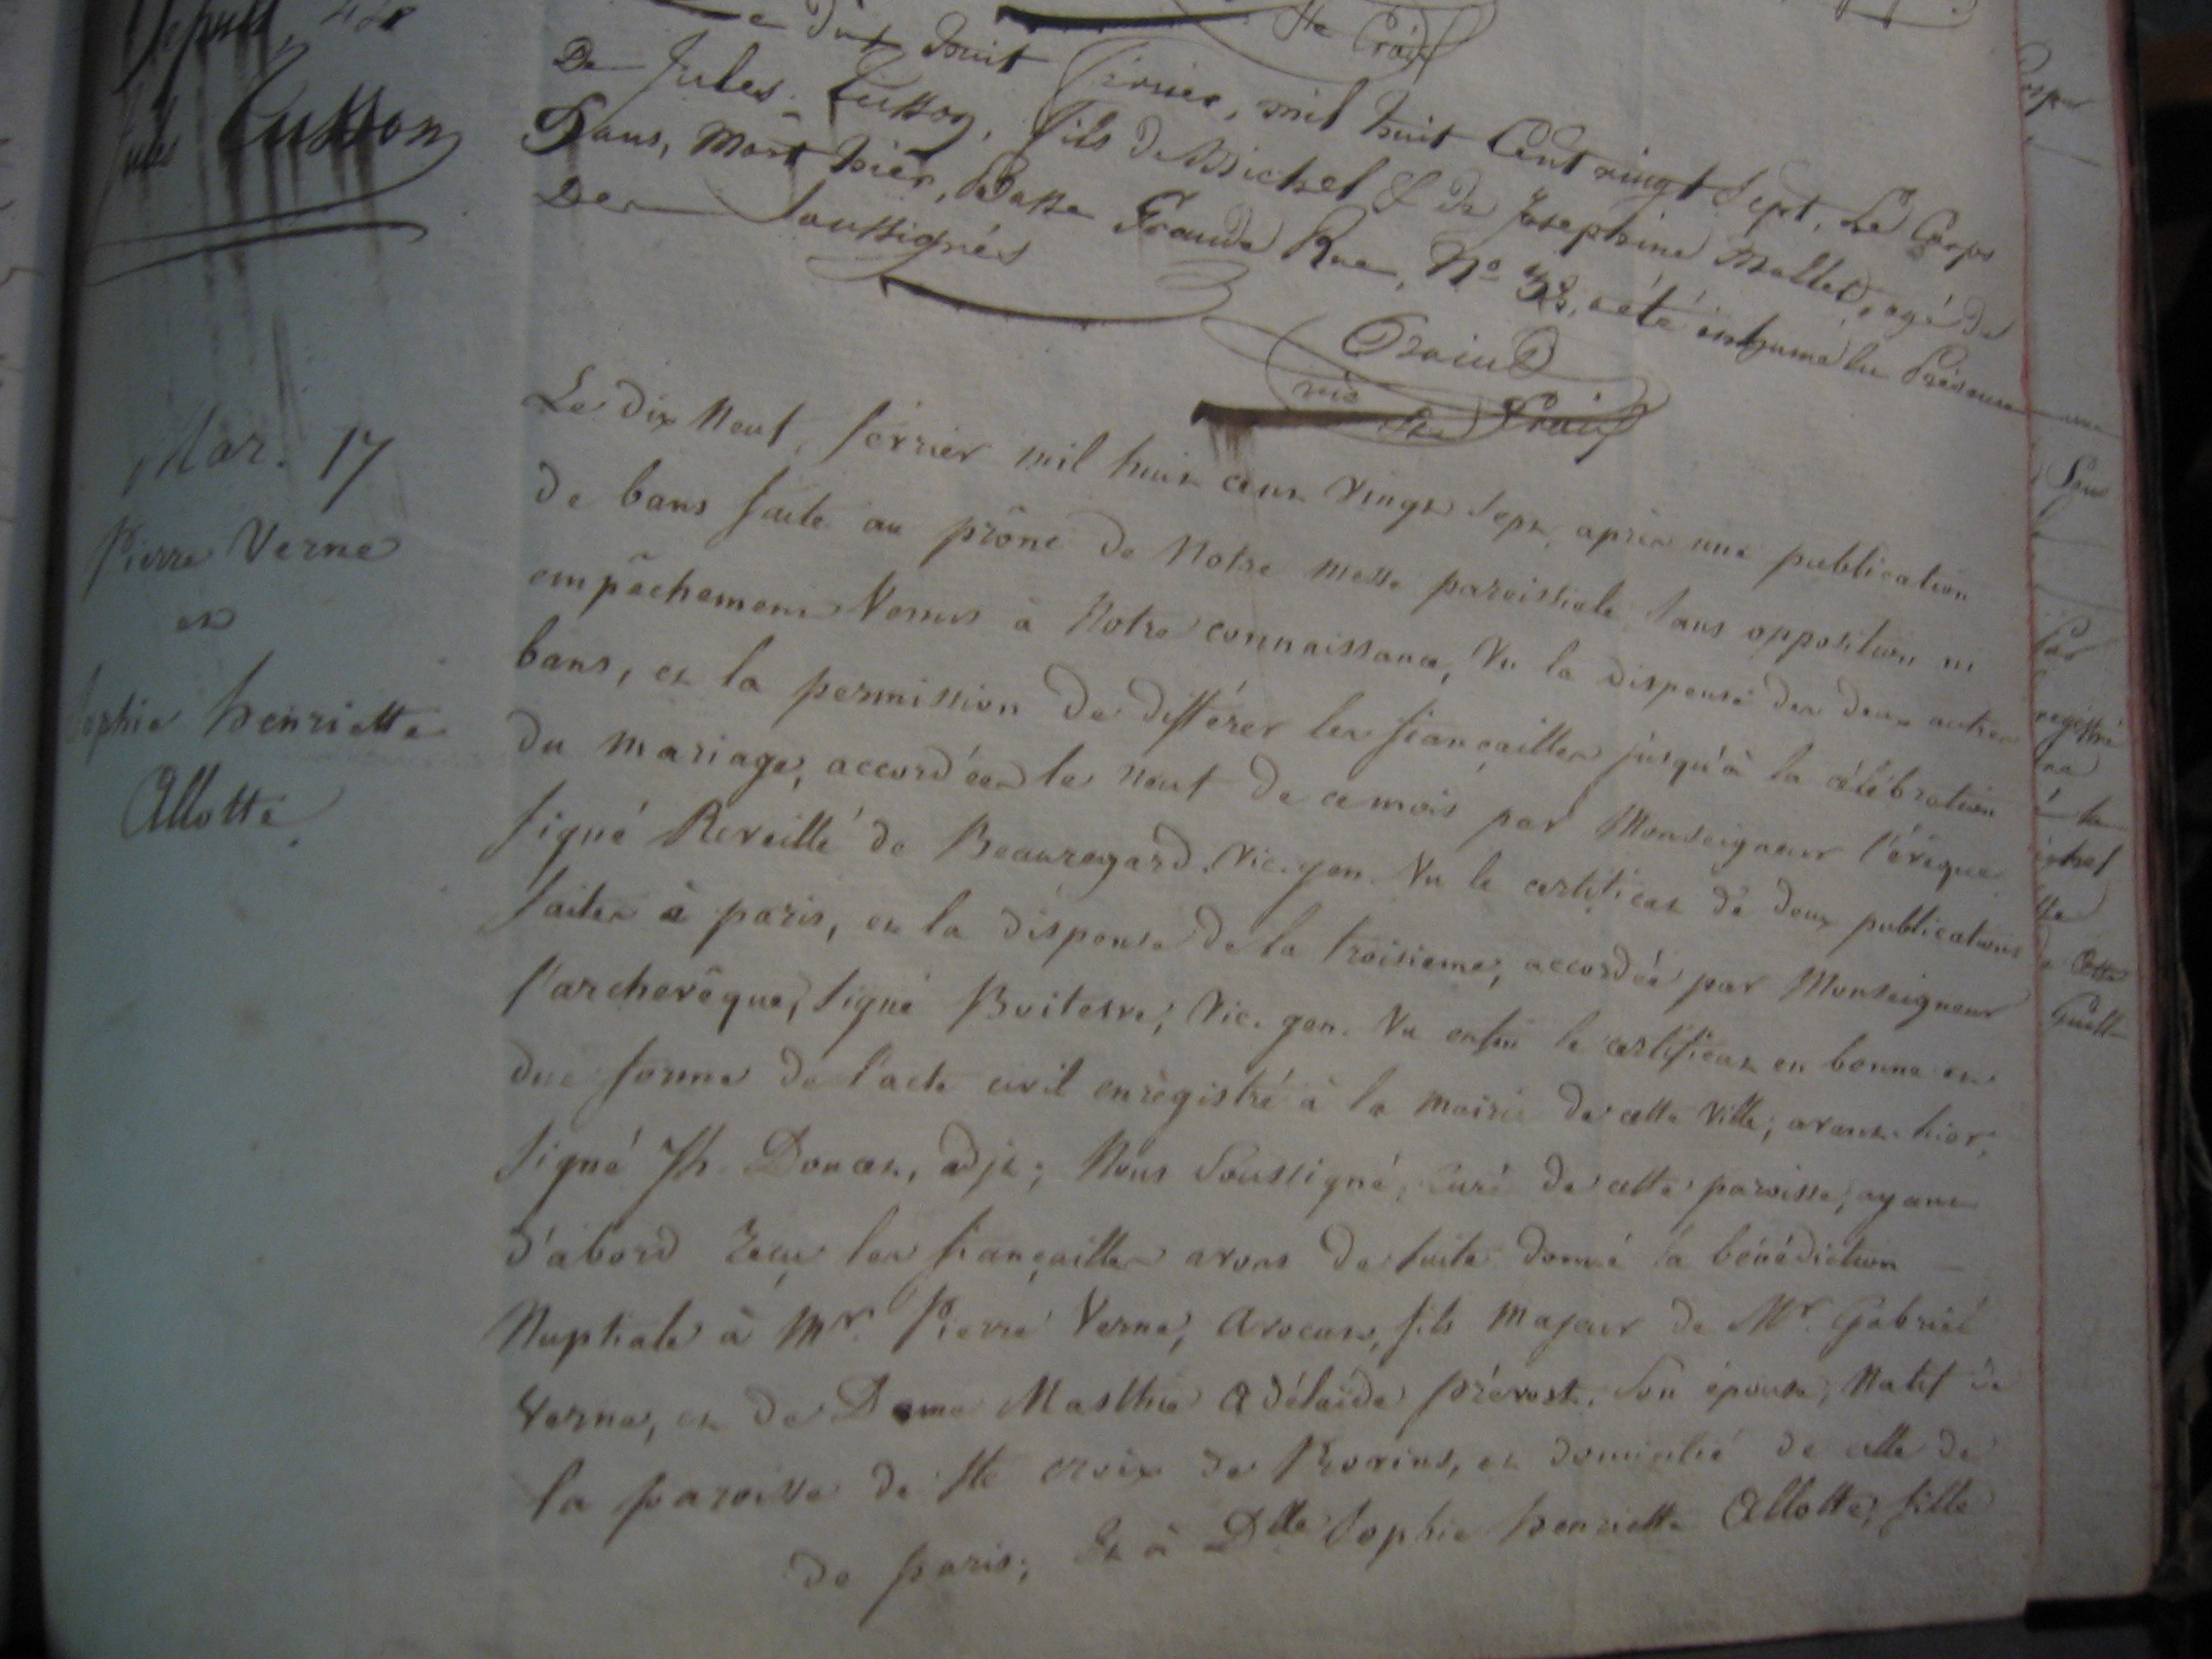 Jules Cusson
Le dix huit février, mil huit Cent vingt Sept, Le Corps
De Jules Cusson, fils de Michel & de Josephine Mallet, agé de
Dans, Mort hier, Basse Grande Rue, N° a été inhumé en Présence
Des Soussignés
vic
Ste Croix
Mar. 17
Pierre Verne
et
Sophie henriette
Allotte.
Le dix Neuf, février mil huit cent Vingt Sept, après une publication
de bans faite au prône de Notre messe paroissiale, sans opposition ni
empêchement Venus à Notre connaissance, Vu la dispense des deux autres
bans, et la permission de différer les fiançailles jusqu'à la célébration
du mariage, accordées le neuf de ce mois par Monseigneur l'évêque
signé Reveillé de Beauregard. Vic. gen. Vu le certificat de deux publications
faites à paris, et la dispense de la troisieme, accordée par Monseigneur
l'archevêque, signé Boitesve, Vic. gen. Vu enfin le certificat en bonne et
due forme de l'acte civil enregistré à la mairie de cette Ville, avant-hier,
signé Jh. Doucet, adjt; Nous Soussigné, Curé de cette paroisse, ayant
d'abord reçu les fiançailles avons de suite donné la bénédiction
Nuptiale à Mr. Pierre Verne, Avocat, fils majeur de Mr. Gabriel
Verne, et de Dame Masthie Adélaïde prévost, son épouse, Natif de
la paroisse de Ste croix de Provins, et domicilié de celle de
de paris; Et à Dlle Sophie henriette Allotte, fille